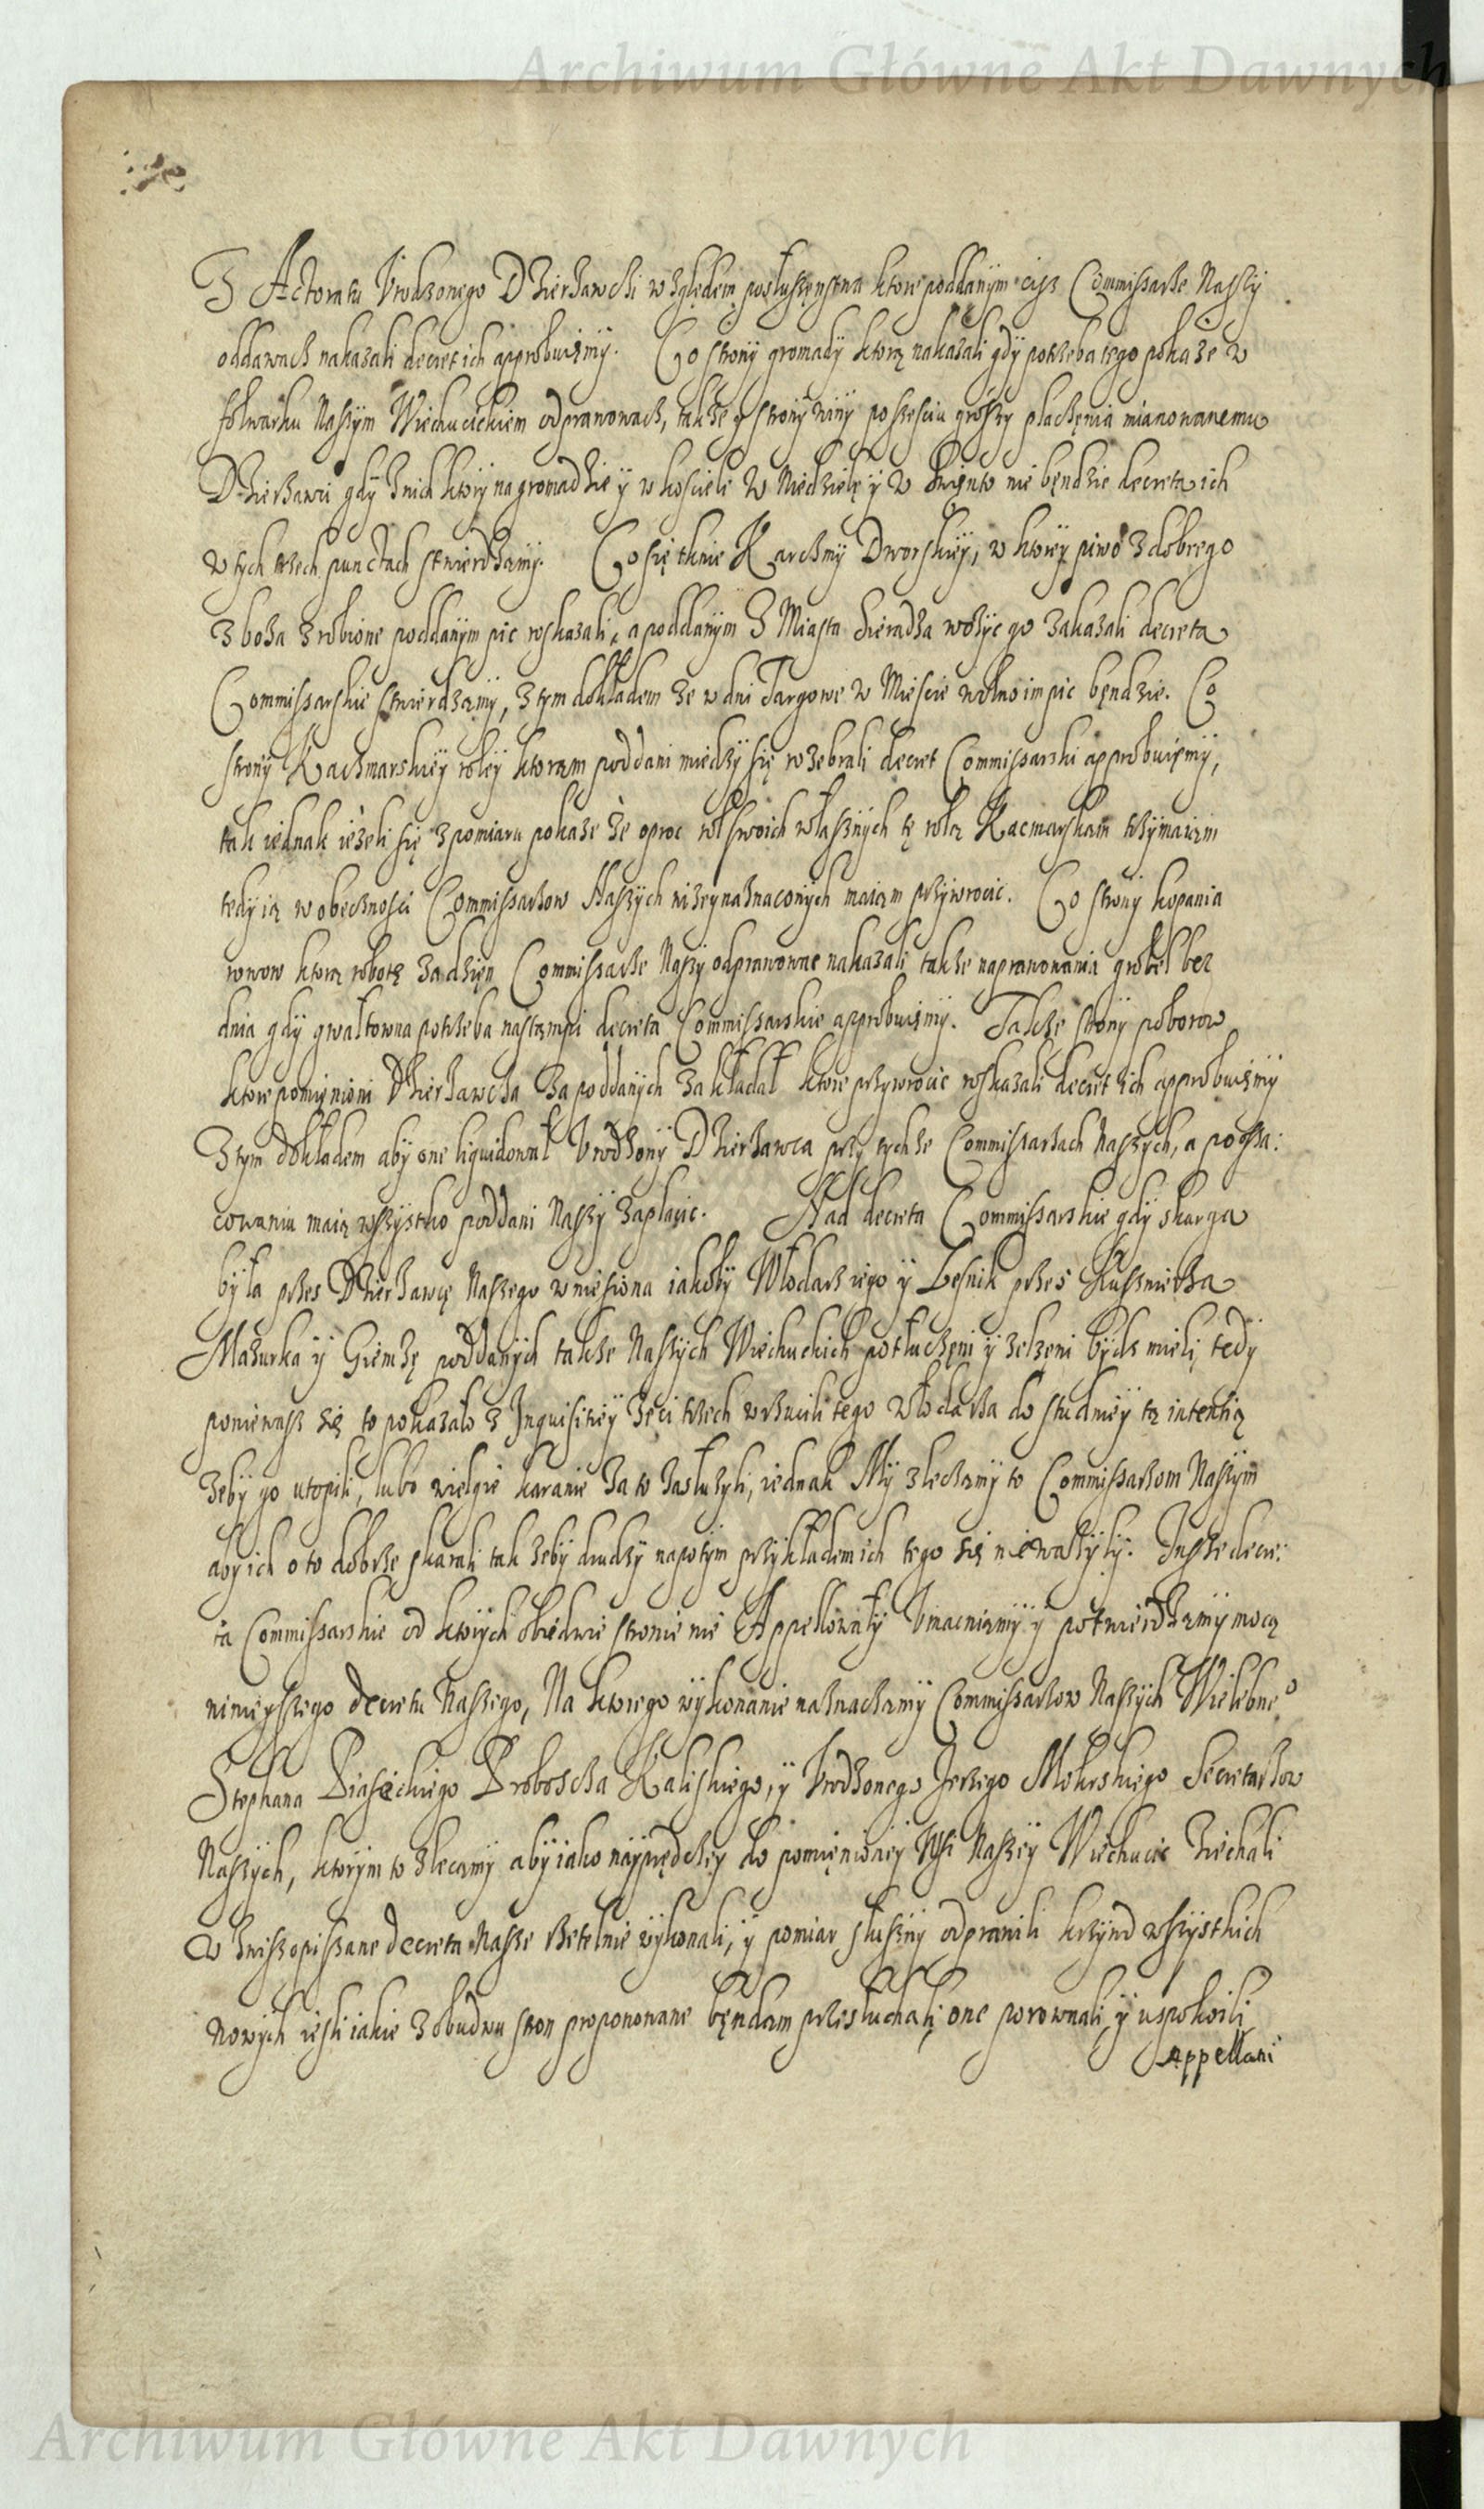 Archiwum Główne Akt Dawnych
Z Actoratu Urodzonego Dzierzawcki względem posłuszenstwa ktore poddanym ciz Commissarze Naszy
oddawach nakazali decret ich approbuiemy. Co strony gromady ktorą nakazali gdy potrzeba tego pokaze w
folwarku Naszym Wiechuckiem odprawowach, takze y strony winy po szesciu groszy płaczenia mianowanemu
Dzierzawci gdy z nich ktory na gromadzie y w kosciele w Niedzielę y w swięnto nie bęndzie decreta ich
w tych trzech punctach stwierdzamy. Co się tknie Karczmy Dworskiey, w ktorey piwo z dobrego
zboza zrobione poddanym pic roskazali, a poddanym z Miasta Sieradza wozyc go zakazali decreta
Commissarskie stwierdzamy, z tym dokładem ze w dni Targowe w Miescie wolno im pic bęndzie. Co
strony Kaczmarskiey roley ktoram poddani miedzy się rozebrali decret Commissarski approbuiemy,
tak iednak iezeli się z pomiaru pokaze ze oproc rol swoich własznych tę rolą Kacmarskam trzymaiąm
tedy ią w obecznosci Commissarzow Naszych nizey naznaconych maiąm przywrocic. Co strony kopania
rowow ktorą robotę za dzien Commissarze Naszy odprawowac nakazali takze naprawowania grobel bez
dnia gdy gwałtowna potrzeba nastąmpi decreta Commissarskie approbuiemy. Takze strony poborow
ktore pomięnioni Dzierzawcza za poddanych zakładał ktore przywrocic roskazali decret ich approbuiemy
z tym dokładem aby one liquidował Urodzony Dzierzawca przy tychze Commissarzach Naszych, a po osza:
cowaniu maią wszystko poddani Naszy zapłacic. Nad decreta Commissarskie gdy skarga
była przes Dzierzawcę Naszego wniesiona iakoby Włodarz iego y Lesnik przes Kusznierza
Mazurka y Giemzę poddanych takze Naszych Wiechuckich potłuczeni y zelzeni bydz mieli, tedy
poniewasz się to pokazało z Inquisitiey ze ci trzech wrzucili tego włodarza do studniey tą intentią
zeby go utopili, lubo wielgie karanie za to zasłuzyli, iednak My zleczamy to Commissarzom Naszym
aby ich o to dobrze skarali tak zeby drudzy napotym przykładem ich tego się nie wazyly. Insze decre:
ta Commissarskie od ktorych obiedwie stronie nie Appellowały Vmacniamy y potwierdzamy mocą
ninieyszego decretu Naszego, Na ktorego wykonanie naznaczamy Commissarzow Naszych Wielebne°
Stephana Piaseckiego Proboscza Kaliskiego, y Urodzonego Jerzego Mokrskiego Secretarzow
Naszych, ktorym to zlecamy aby iako nayprędczey do pomięnioney Wsi Naszey Wiechucic Ziechali
w zwisz opissane decreta Nasze Rzetelnie wykonali, y pomiar słuszny odprawili krzywd wszystkich
nowych iesli iakie z obudwu stron proponowane bęndam przesłuchali one porownali, y uspokoili
Appellani
Archiwum Główne Akt Dawnych